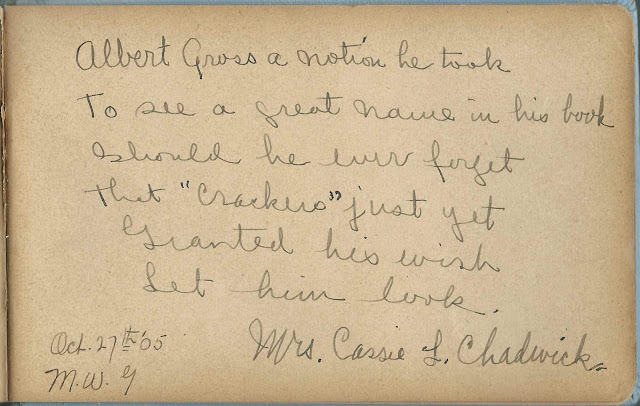 Albert Gross a notion he took
To see a great name in his book
Should he ever forget
That "Crackers" just yet
Granted his wish
Let him look.
Oct. 27th '05
M.W. G
Mrs. Cassie L. Chadwick